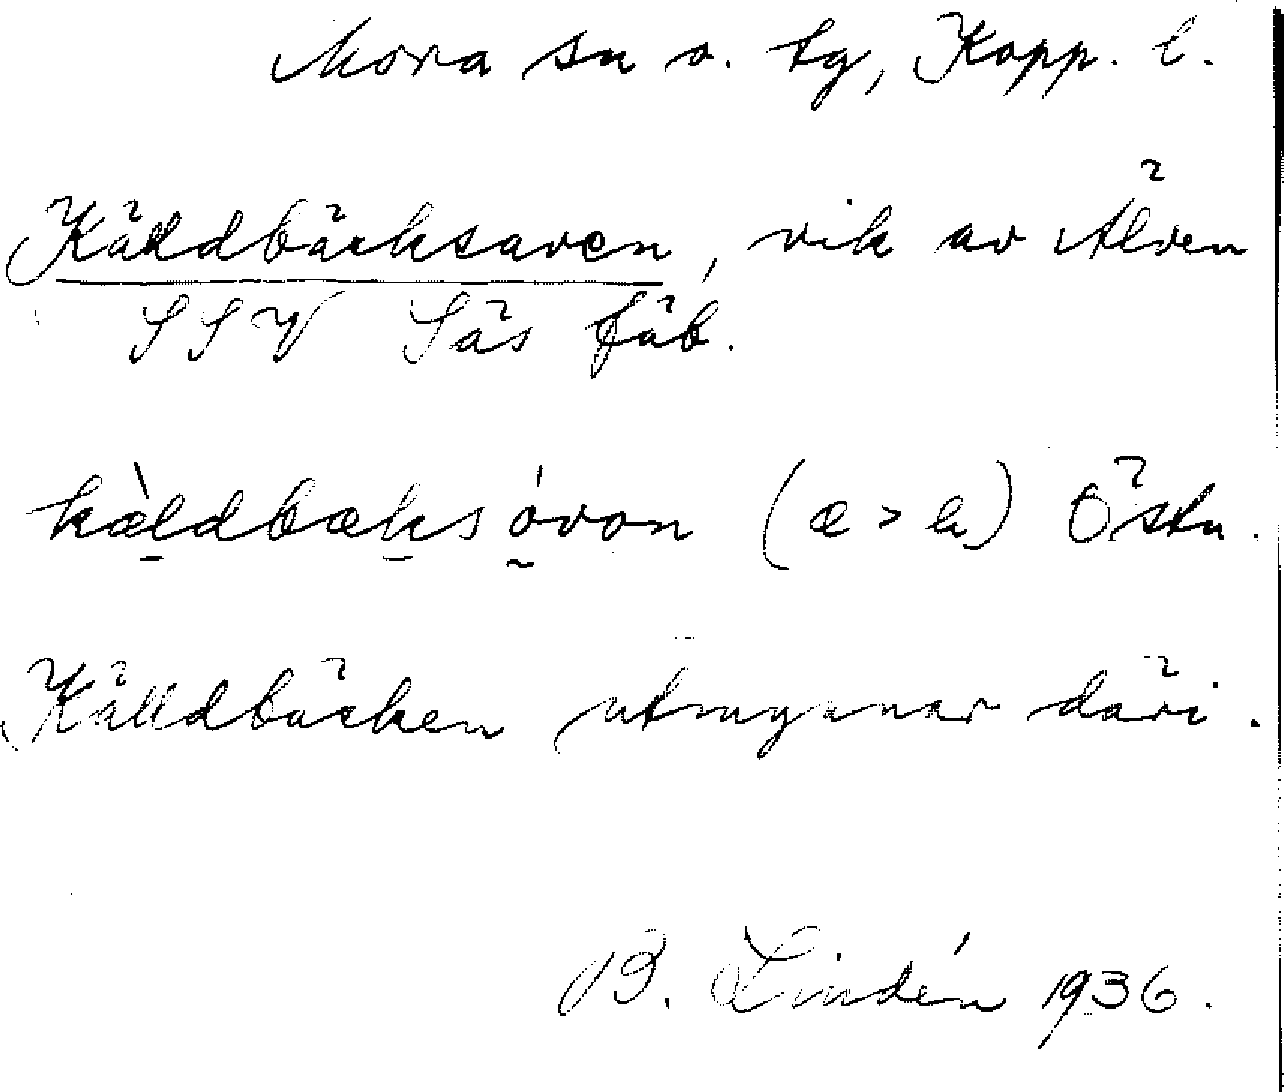 Mora sn o. tg, Kopp. l.
Källdbäcksaven, vik av Älven
SSV Säs fäb.
kæ̀ldbæksóvon (æ > a) Östn.
Källdbäcken utmynnar däri.
B. Lindén 1936.